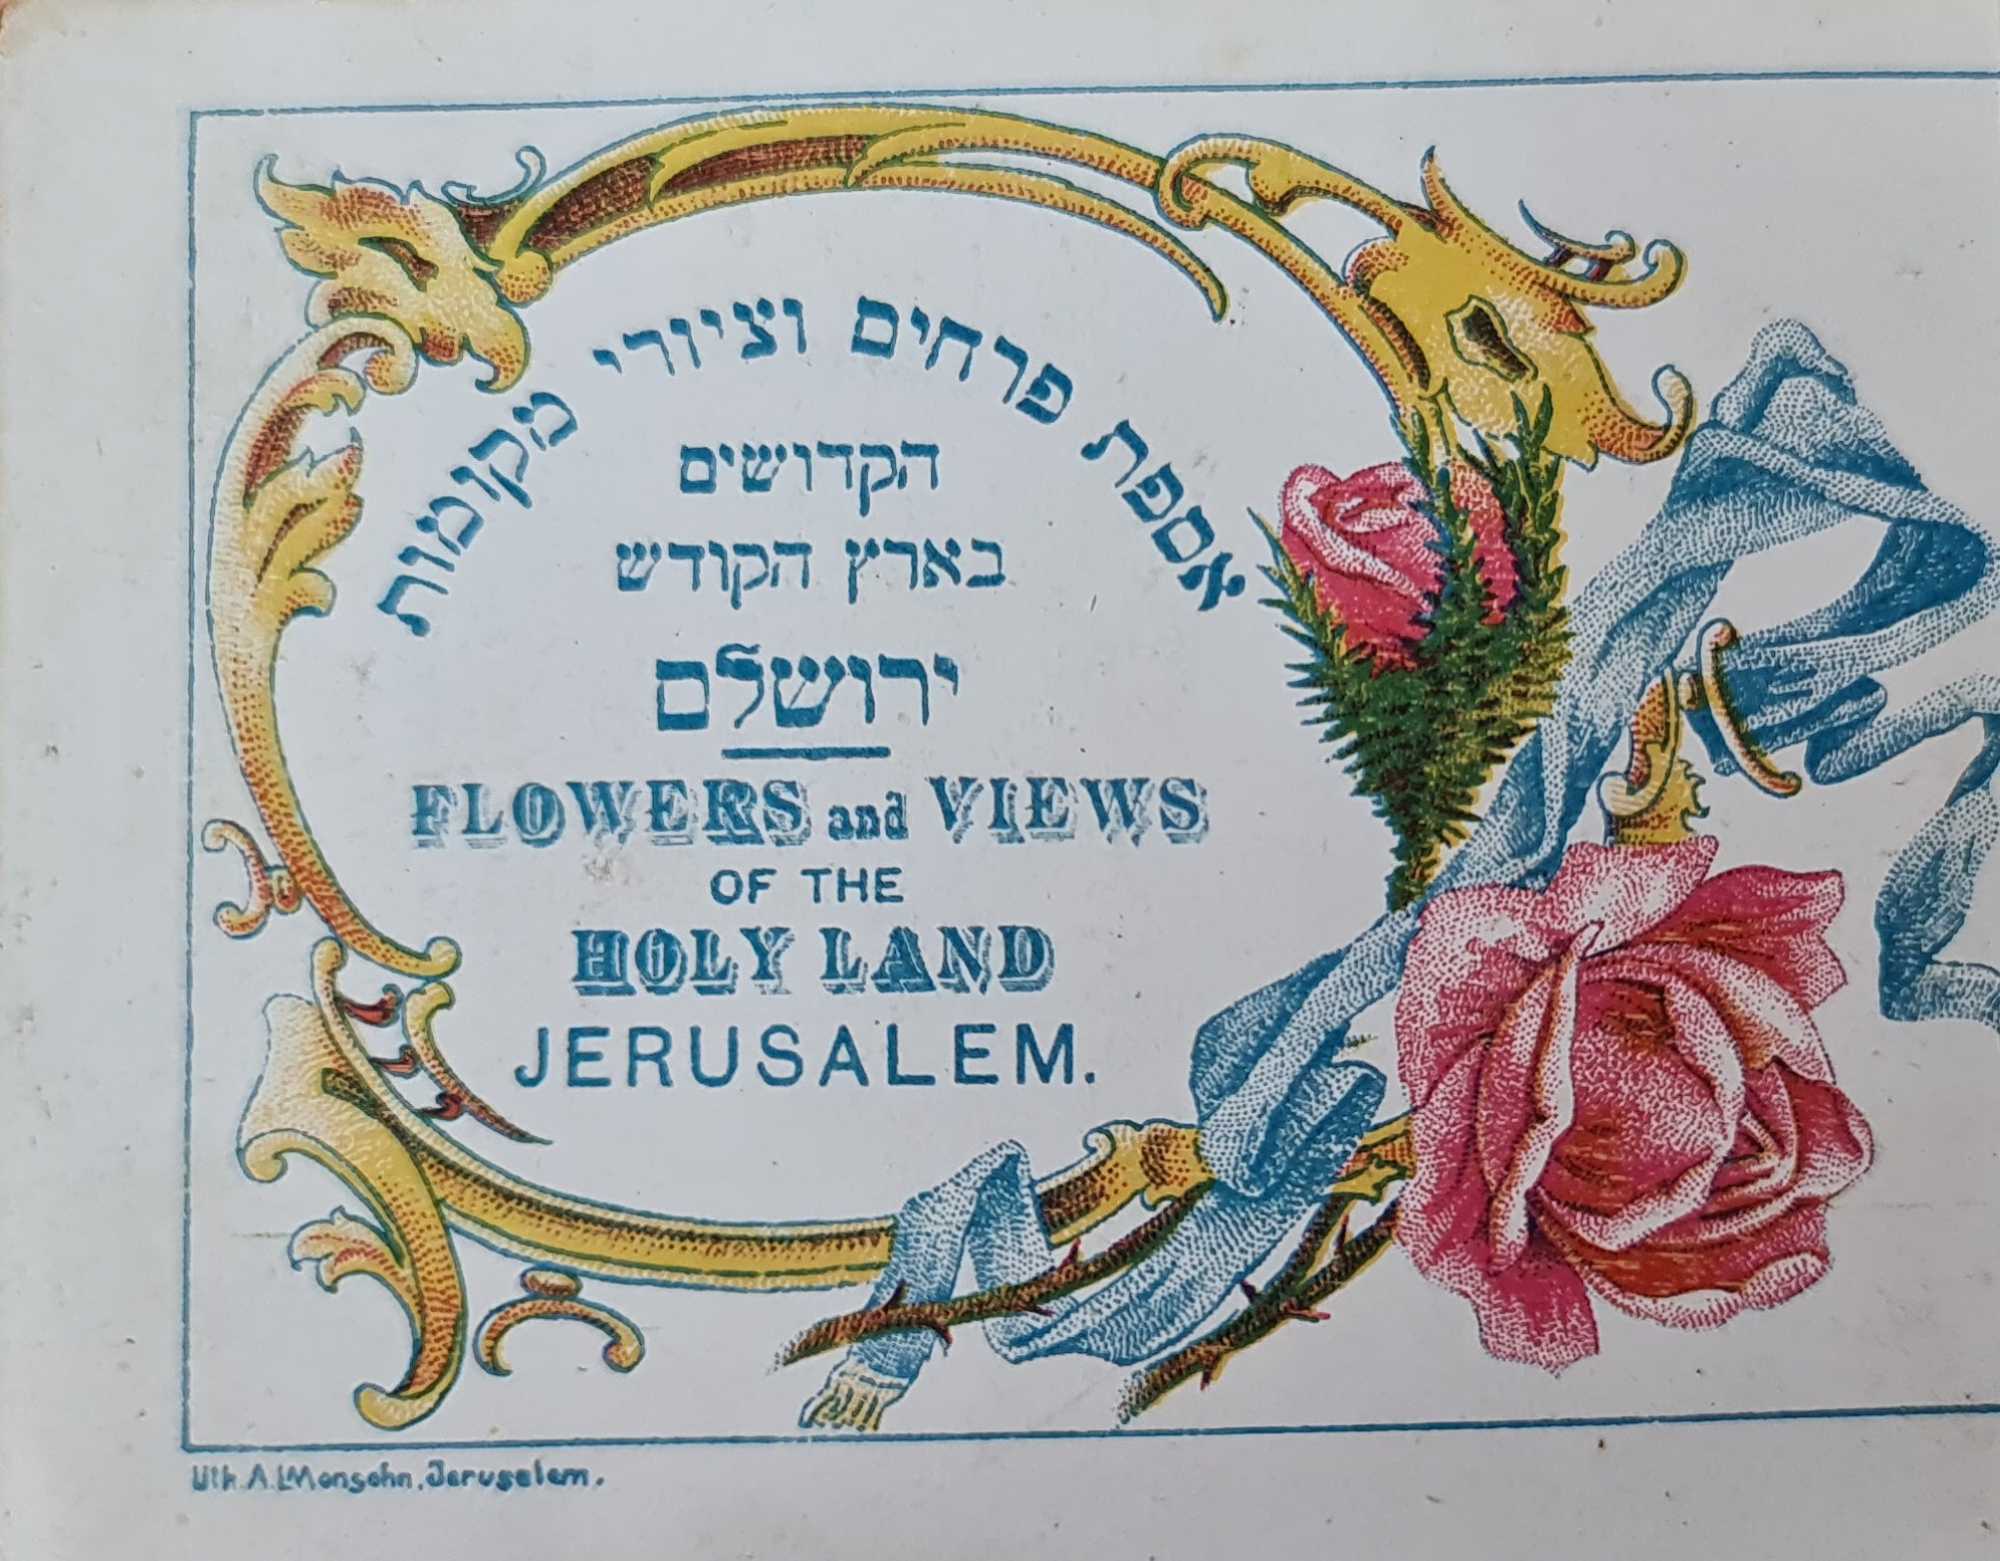 אספת פרחים וציורי מקומות
הקדושים
בארץ הקודש
ירושלם
FLOWERS and VIEWS
OF THE
HOLY LAND
JERUSALEM.
Lith. A.L Monsohn, Jerusalem.